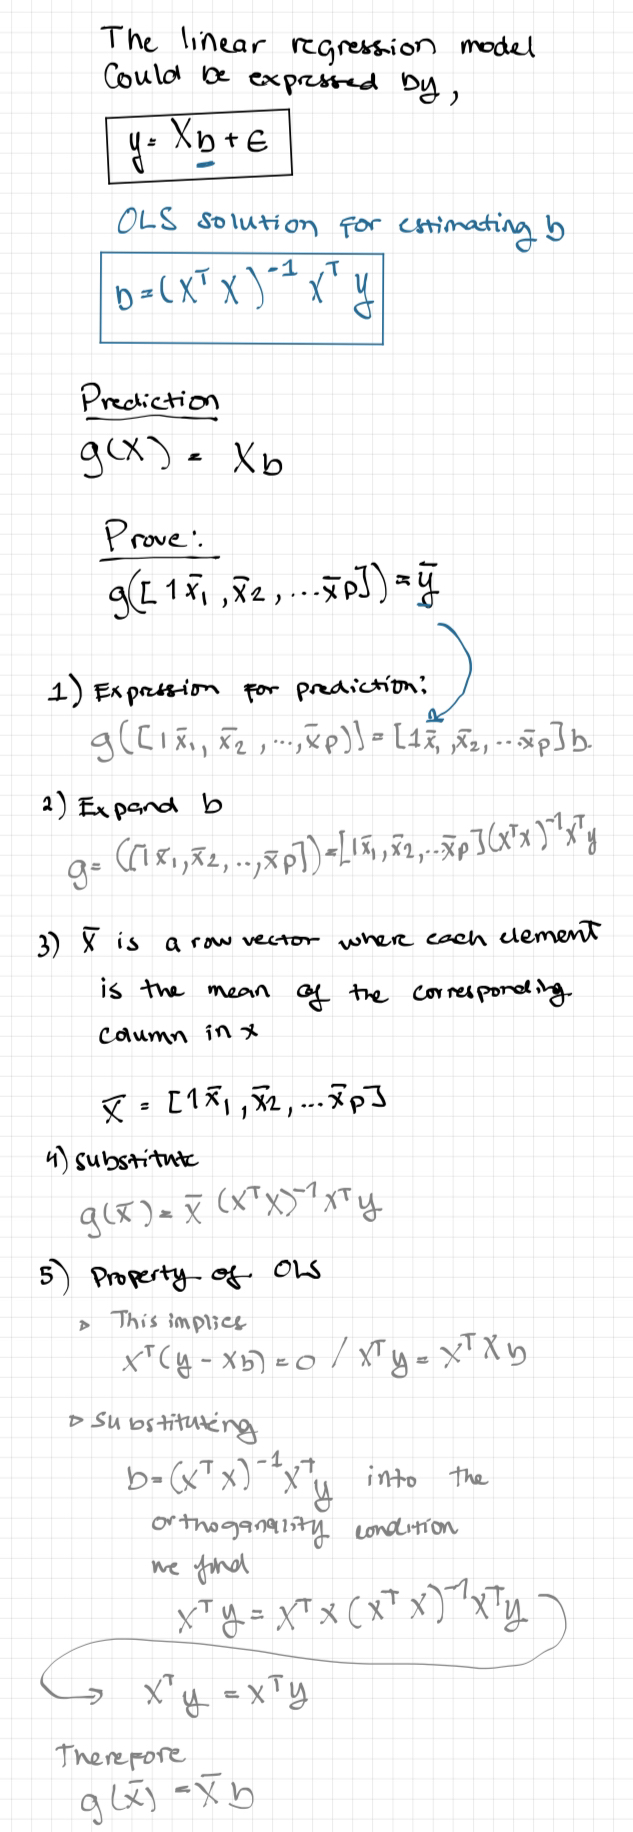 The linear regression model
Could be expressed by,
y = Xb + ϵ
OLS solution for estimating b
b = (XᵀX)⁻¹ Xᵀ y
Prediction
g(X) = Xb
Prove:
g([1 x̄₁, x̄₂, ... x̄p]) = ȳ
1) Expression for prediction:
g([1 x̄₁, x̄₂, ..., x̄p)] = [1 x̄₁, x̄₂, ... x̄p] b.
2) Expand b
g = ([1 x̄₁, x̄₂, .., x̄p]) = [1 x̄₁, x̄₂, .. x̄p] (XᵀX)⁻¹Xᵀy
3) X̄ is a row vector where each element
is the mean of the corresponding
column in x
X̄ = [1 x̄₁, x̄₂, ... x̄p]
4) substitute
g(x̄) = x̄ (XᵀX)⁻¹ Xᵀ y
5) Property of OLS
▹ This implies
Xᵀ(y - Xb) = 0 / Xᵀy = XᵀXb
▹ Substituting
b = (XᵀX)⁻¹Xᵀy into the
orthoganality condition
we find
Xᵀy = XᵀX(XᵀX)⁻¹Xᵀy
→ Xᵀy = Xᵀy
Therefore
g(x̄) = X̄b